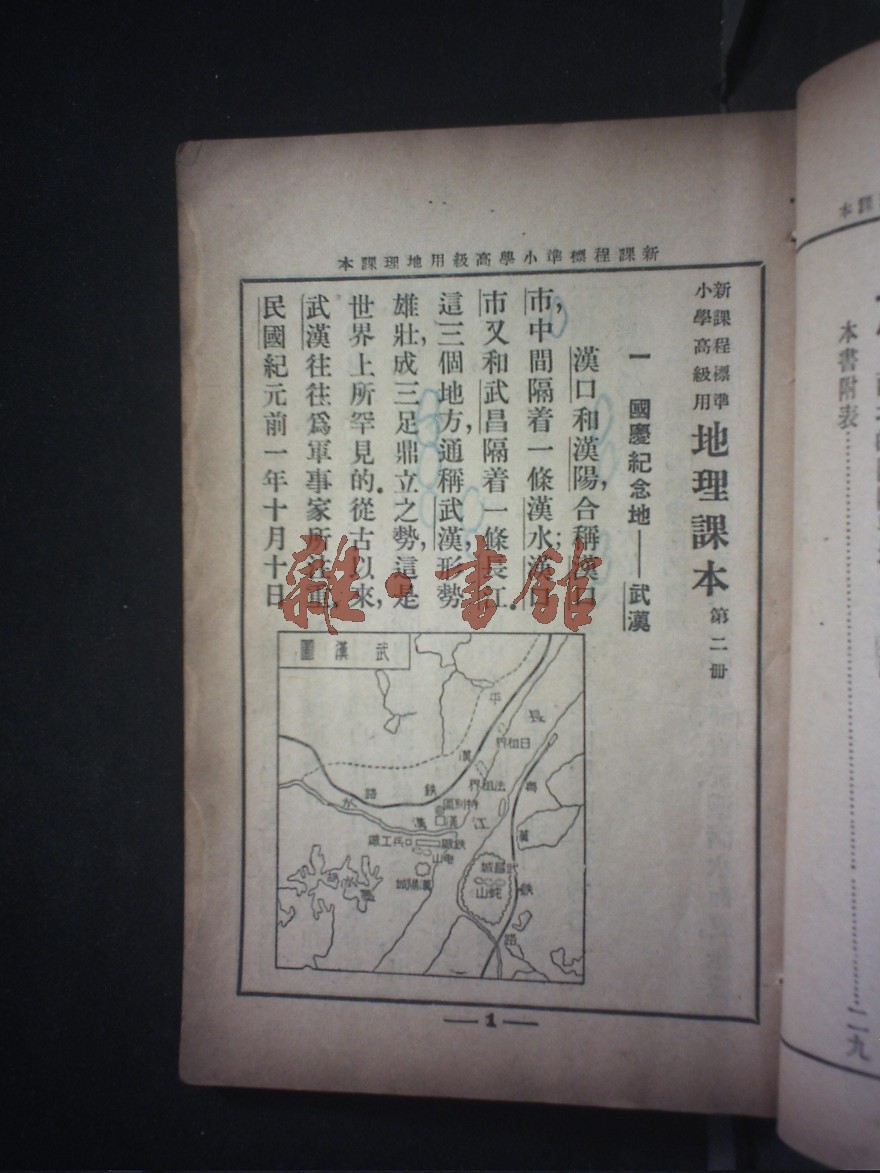 新課程標準小學高級用地理課本
新課程標準
小學高級用
地理課本 第二冊
一 國慶紀念地——武漢
漢口和漢陽,合稱漢口
市,中間隔着一條漢水;漢口
市又和武昌隔着一條長江。
這三個地方,通稱武漢,形勢
雄壯,成三足鼎立之勢,這是
世界上所罕見的。從古以來,
武漢往往爲軍事家所注重,
民國紀元前一年十月十日
武漢圖
平
漢
鐵
路
長
江
日租界
法租界
特別區
漢
水
兵工廠
鐵廠
龜山
漢陽城
武昌城
蛇山
粵
漢
鐵
路
雜·書館
—1—
本書附表
二九
課本